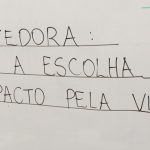 EDORA:
A ESCOLHA
PACTO PELA VI